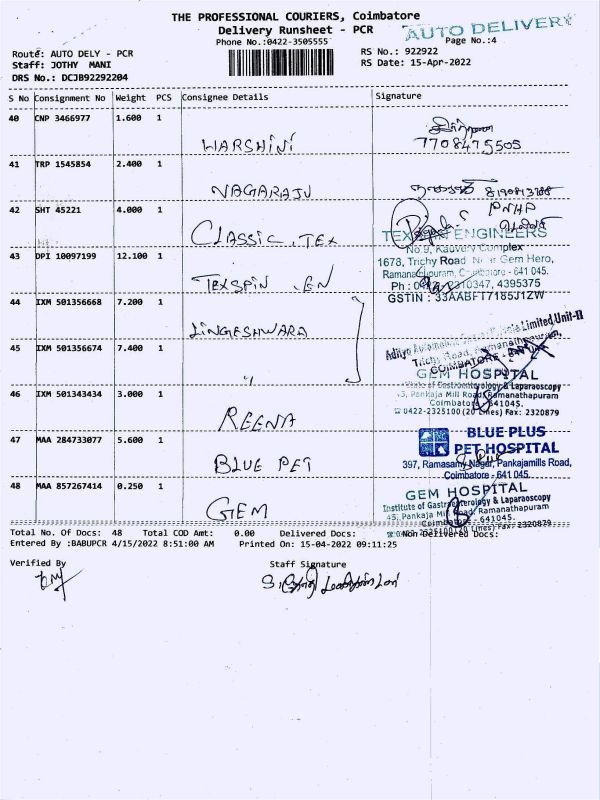 THE PROFESSIONAL COURIERS, Coimbatore
Delivery Runsheet - PCR
AUTO DELIVERY
Phone No.:0422-3505555
Page No.:4
Route: AUTO DELY - PCR
RS No.: 922922
Staff: JOTHY MANI
RS Date: 15-Apr-2022
DRS No.: DCJB92292204
S No Consignment No Weight PCS Consignee Details Signature
40 CNP 3466977 1.600 1
WARSHINI
7708475505
41 TRP 1545854 2.400 1
NAGARAJU
42 SHT 45221 4.000 1
CLASSIC .TEX
ENGINEERS
No.9, Kauvery Complex
43 DPI 10097199 12.100 1
1678, Trichy Road Gem Hero,
Coimbatore - 641 045.
TEXSPIN .EN
Ph : 2310347, 4395375
GSTIN : 33AABFT7185J1ZW
44 IXM 501356668 7.200 1
LINGESHWARA
Limited Unit-II
Trichy Road, Ramanathapuram,
COIMBATORE
45 IXM 501356674 7.400 1
"
GEM HOSPITAL
Institute of Gastroenterology & Laparoscopy
46 IXM 501343434 3.000 1
45, Pankaja Mill Road, Ramanathapuram
Coimbatore 641045.
REENA
0422-2325100 (20 Lines) Fax: 2320879
47 MAA 284733077 5.600 1
BLUE PLUS
PET HOSPITAL
BLUE PET
397, Ramasamy Nagar, Pankajamills Road,
Coimbatore - 641 045.
48 MAA 857267414 0.250 1
GEM HOSPITAL
Institute of Gastroenterology & Laparoscopy
GEM
45, Pankaja Mill Road, Ramanathapuram
Coimbatore - 641045.
(20 Lines) Fax: 2320879
Total No. Of Docs: 48 Total COD Amt: 0.00 Delivered Docs: Non Delivered Docs:
Entered By :BABUPCR 4/15/2022 8:51:00 AM Printed On: 15-04-2022 09:11:25
Verified By
Staff Signature